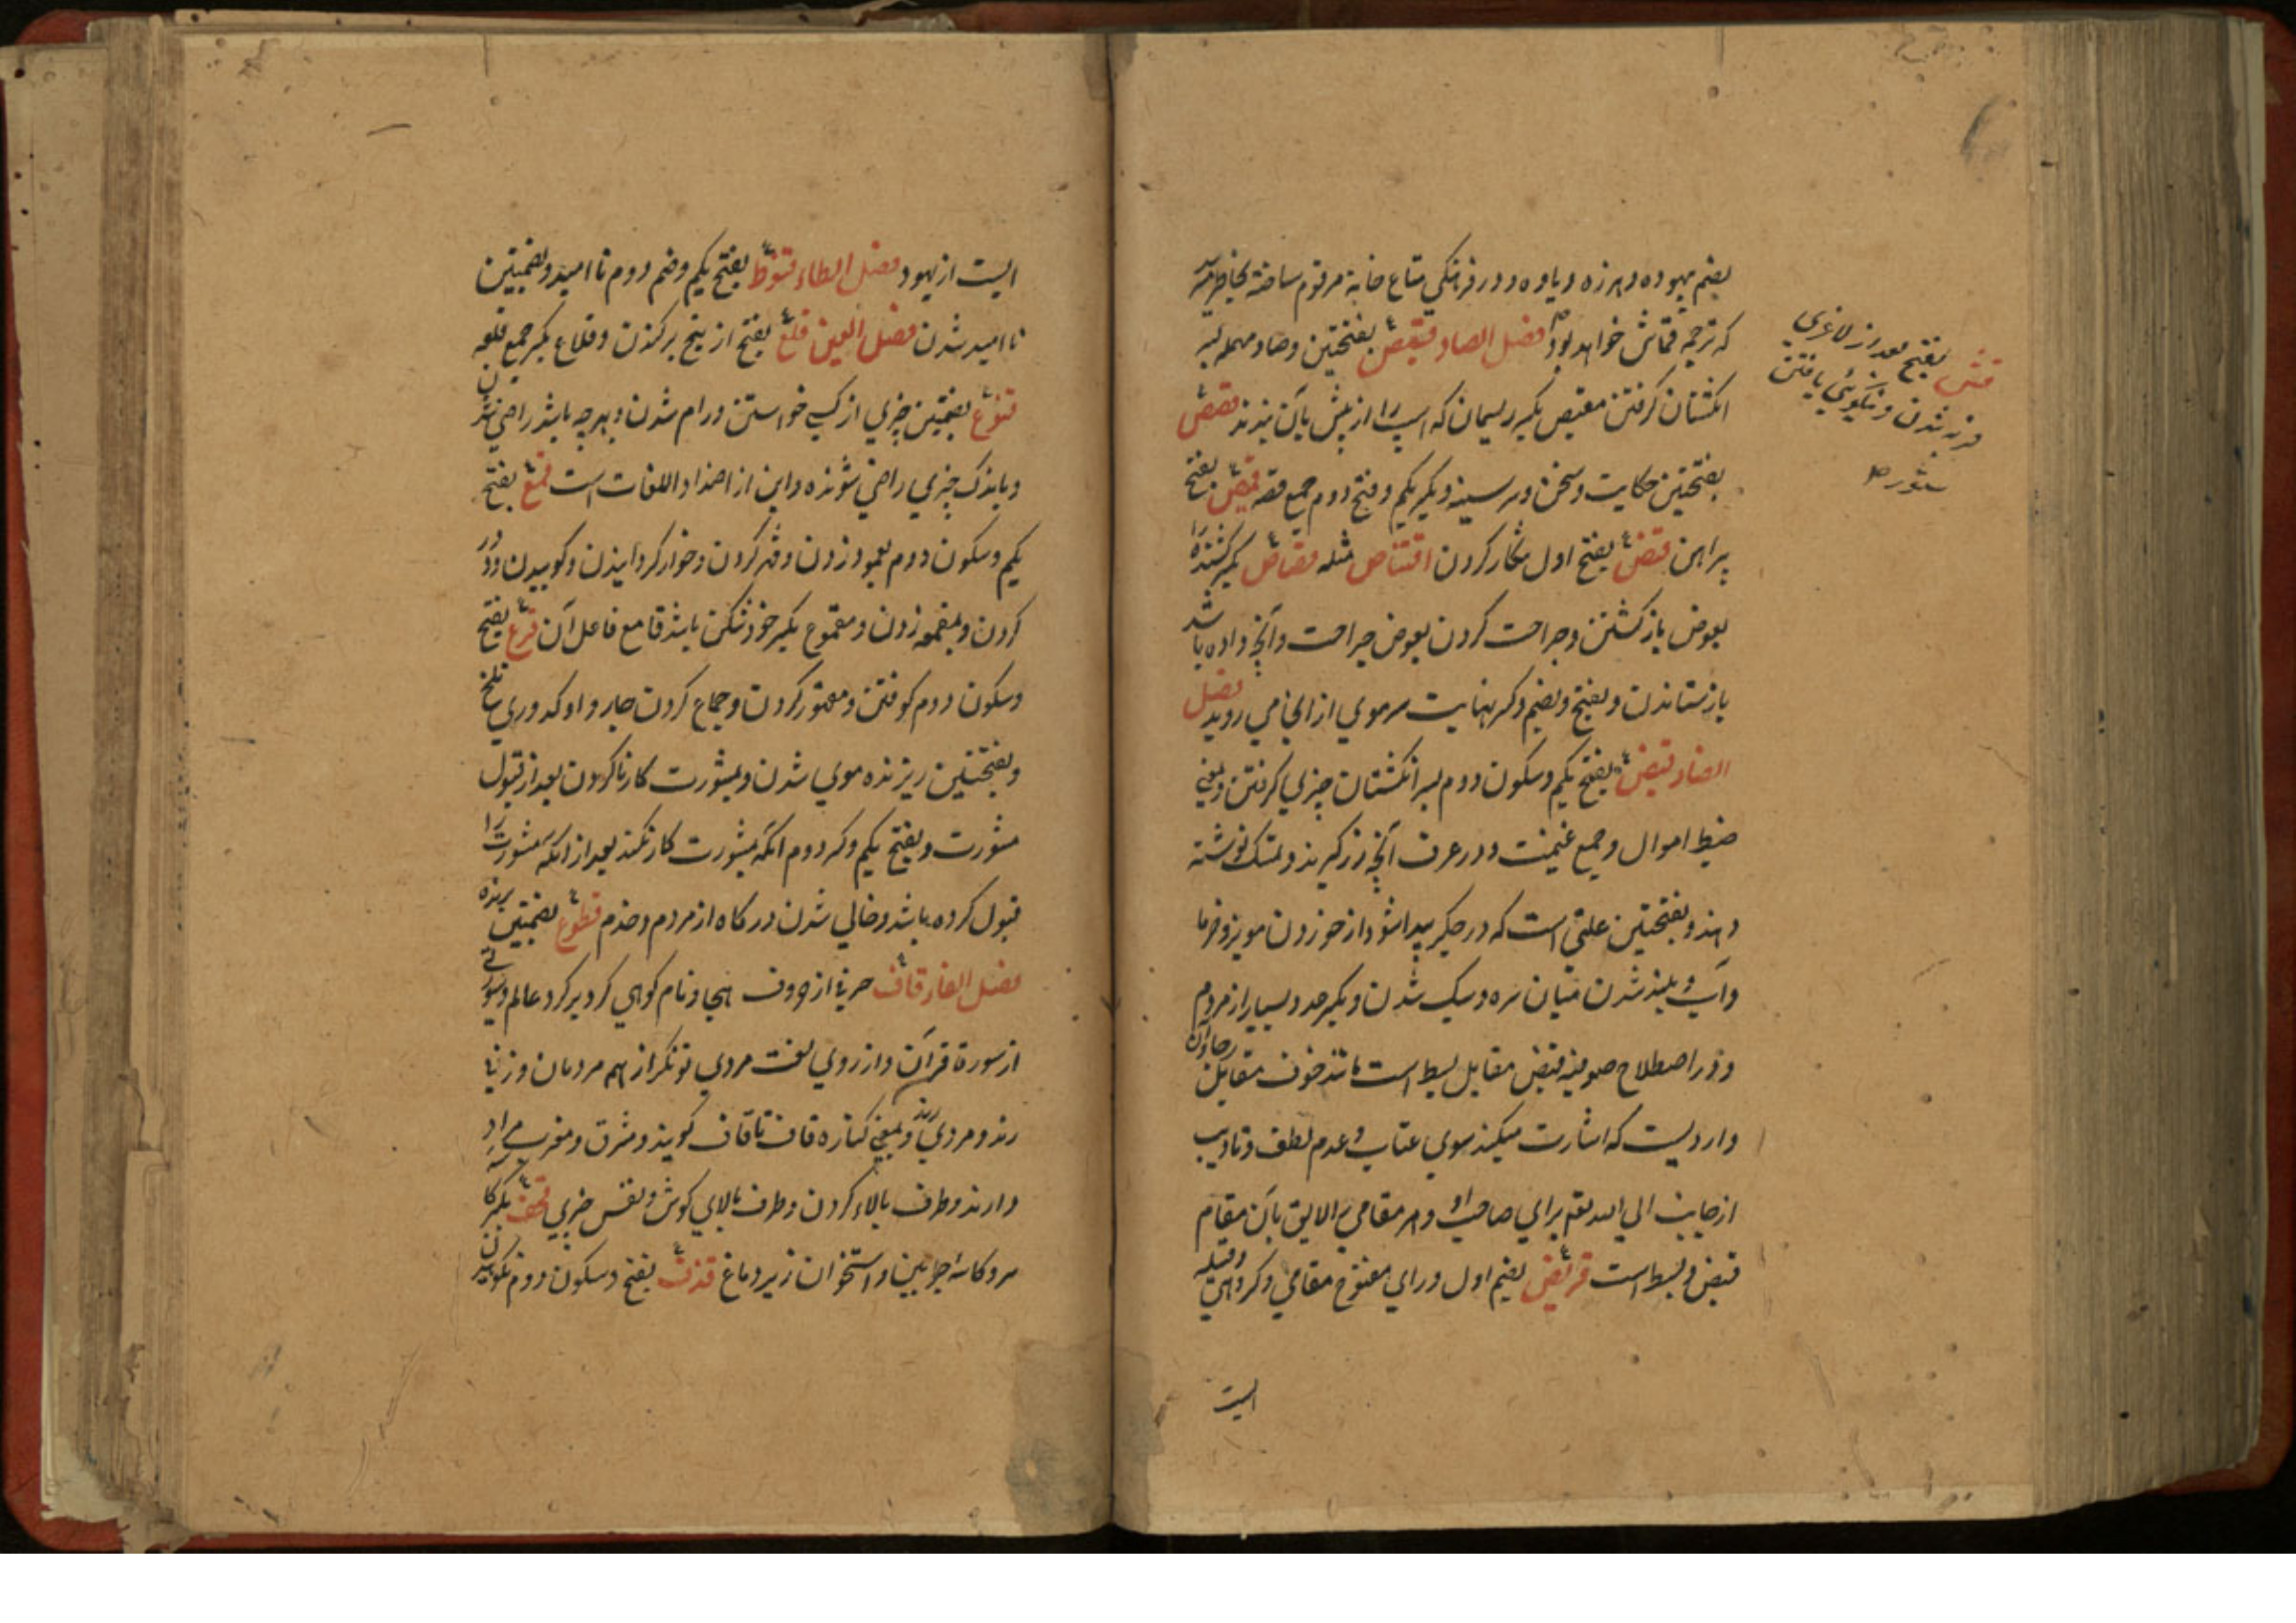 بضم بیهوده و هرزه و یاوه و در فرهنگی متاع خانه مرقوم ساخته بخاطر میرسد
که ترجمه قماش خواهد بود فصل الصاد قبص بفتحتین و صاد مهمله بسر
انکشتان کرفتن مقبص بکسر ریسمان که اسپ را از پیش بآن بندند قصص
بفتحتین حکایت و سخن و سر سینه و بکسر یکم و فتح دوم جمع قصه قمیص بفتح
پیراهن قنص بفتح اول شکار کردن اقتناص مثله قصاص بکسر کشنده را
بعوض باز کشتن و جراحت کردن بعوض جراحت و آنچه داده باشد
باز ستاندن و بفتح و بضم و کسر نهایت سر موی از انجا می روید فصل
الضاد قبض بفتح یکم و سکون دوم بسر انکشتان چیزی کرفتن و بمعنی
ضبط اموال و جمع غنیمت و در عرف آنچه زر کیرند و تمسک نوشته
دهند و بفتحتین علتی است که در جکر پیدا شود از خوردن مویز و خرما
و آب و بلند شدن میان سره و سبک شدن و بکسر عدد بسیار از مردم
و در اصطلاح صوفیه قبض مقابل بسط است مانند خوف مقابل رجا و آن
واردیست که اشارت میکند سوی عتاب و عدم لطف و تادیب
از جانب الی الله تعم برای صاحب او و هر مقامی را لایق بآن مقام
قبض و بسط است قریض بضم اول و رای مفتوح مقامی و کروهی و قبیله
ایست
قش بفتح بعد از لاغری
فربه شدن و نیکوئی یافتن
ستور
ایست از یهود فصل الطاء قنوط بفتح یکم و ضم دوم نا امید و بضمتین
نا امید شدن فصل العین قلع بفتح از بیخ برکندن و قلاع بکسر جمع قلعه
قنوع بضمتین چیزی از کسی خواستن و رام شدن و بهرچه باشد راضی شدن
و باندک چیزی راضی شونده و این از اضداد اللغات است قمع بفتح
یکم و سکون دوم بعمود زدن و قهر کردن و خوار کردانیدن و کوبیدن و دور
کردن و بمقمعه زدن و مقموع بکسر خود شکن باشد قامع فاعل آن قرع بفتح
و سکون دوم کوفتن و مقهور کردن و جماع کردن چارو او کدوری تلخ
و بفتحتین ریزنده موی شدن و بمشورت کار ناکردن بعد از قبول
مشورت و بفتح یکم و کسر دوم انکه بمشورت کار نکند بعد از انکه مشورت را
قبول کرده باشد و خالی شدن درکاه از مردم و خدم قطوع بضمتین برنده
فصل الفاء قاف حرفی از حروف هجا و نام کوهی کرد برکرد عالم و سورتی
از سورة قرآن و از روی لغت مردی توانکر از هم مردمان و زنی
رند و مردی رند و بمعنی کناره قاف تا قاف کویند و مشرق و مغرب مراد
دارند و طرف بالا کردن و طرف بالای کوش و نفس چیزی قحف بکسر کا
سر و کاسه چوبین و استخوان زیر دماغ قذف بفتح و سکون دوم